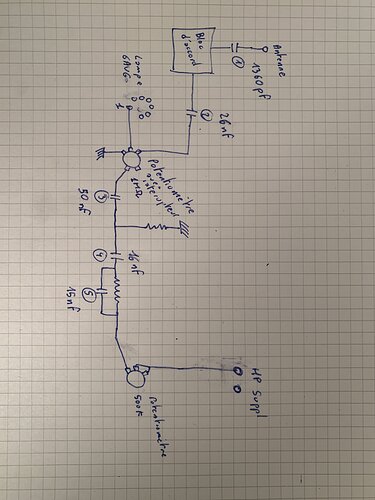 Antenne
①
1360 pf
Bloc
d'accord
②
26 nf
Lampe
6AV6
1
Potentiomètre
avec
interrupteur
1MΩ
③
50 nf
④
16 nf
⑤
15 nf
HP Suppl
Potentiomètre
500K